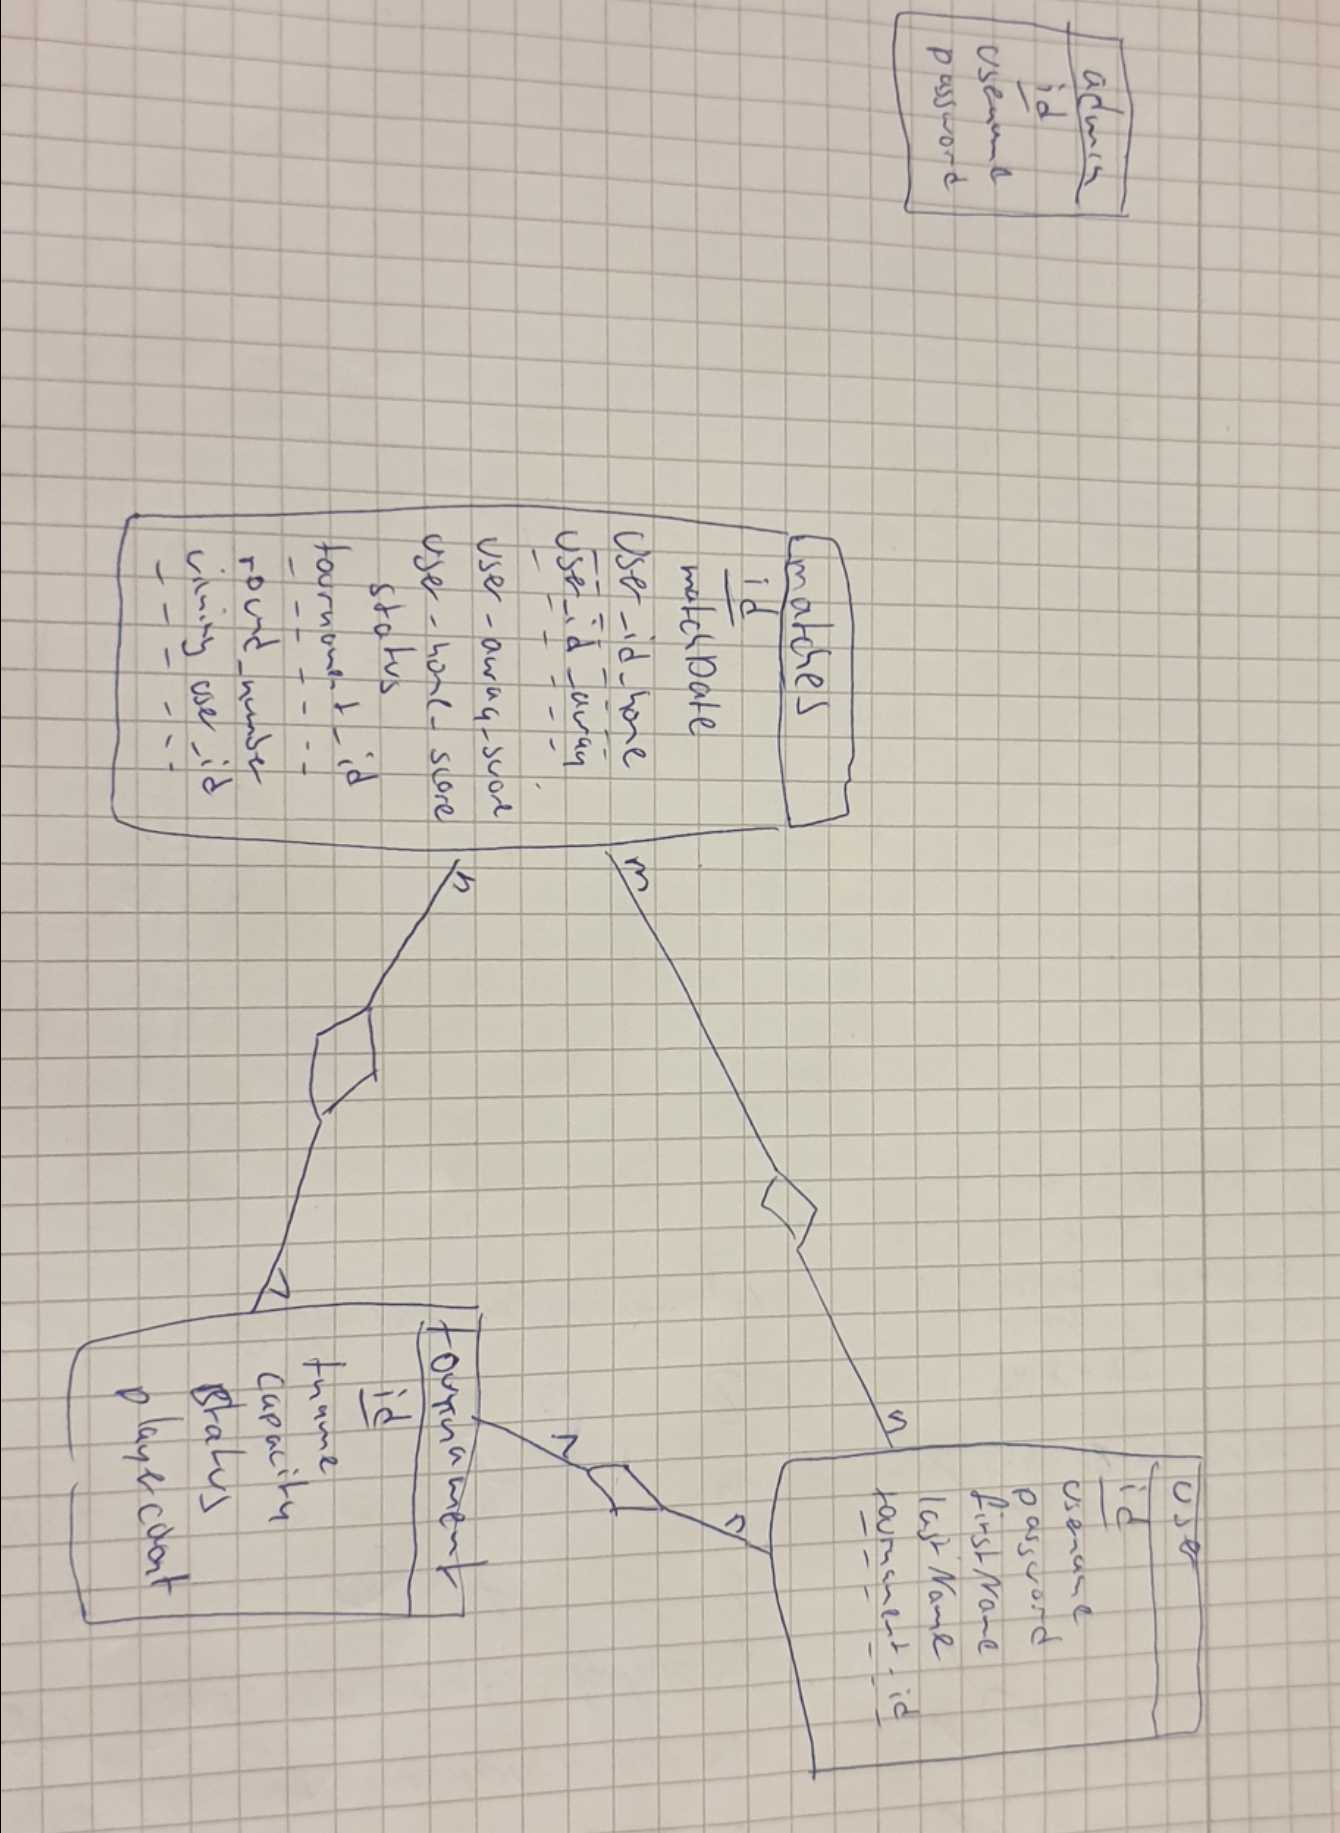 admin
id
username
password
matches
id
matchDate
user_id_home
user_id_away
user_away_score
user_home_score
status
tournament_id
round_number
winning user_id
m
n
n
1
n
user
id
username
password
firstName
lastName
tournament_id
tournament
id
tname
capacity
status
playercount